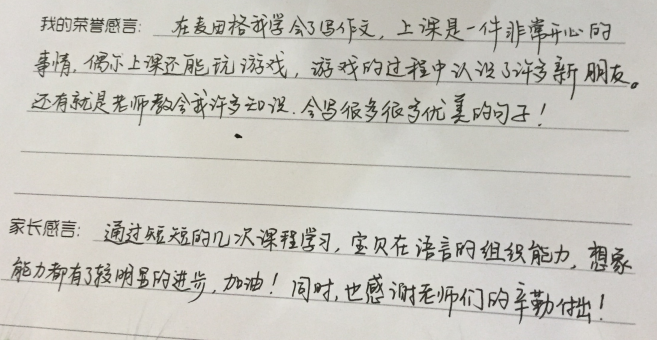 我的荣誉感言: 在麦田格我学会了写作文，上课是一件非常开心的
事情，偶尔上课还能玩游戏，游戏的过程中认识了许多新朋友。
还有就是老师教会我许多知识.会写很多很多优美的句子！
家长感言: 通过短短的几次课程学习，宝贝在语言的组织能力，想象
能力都有了较明显的进步，加油！同时，也感谢老师们的辛勤付出！